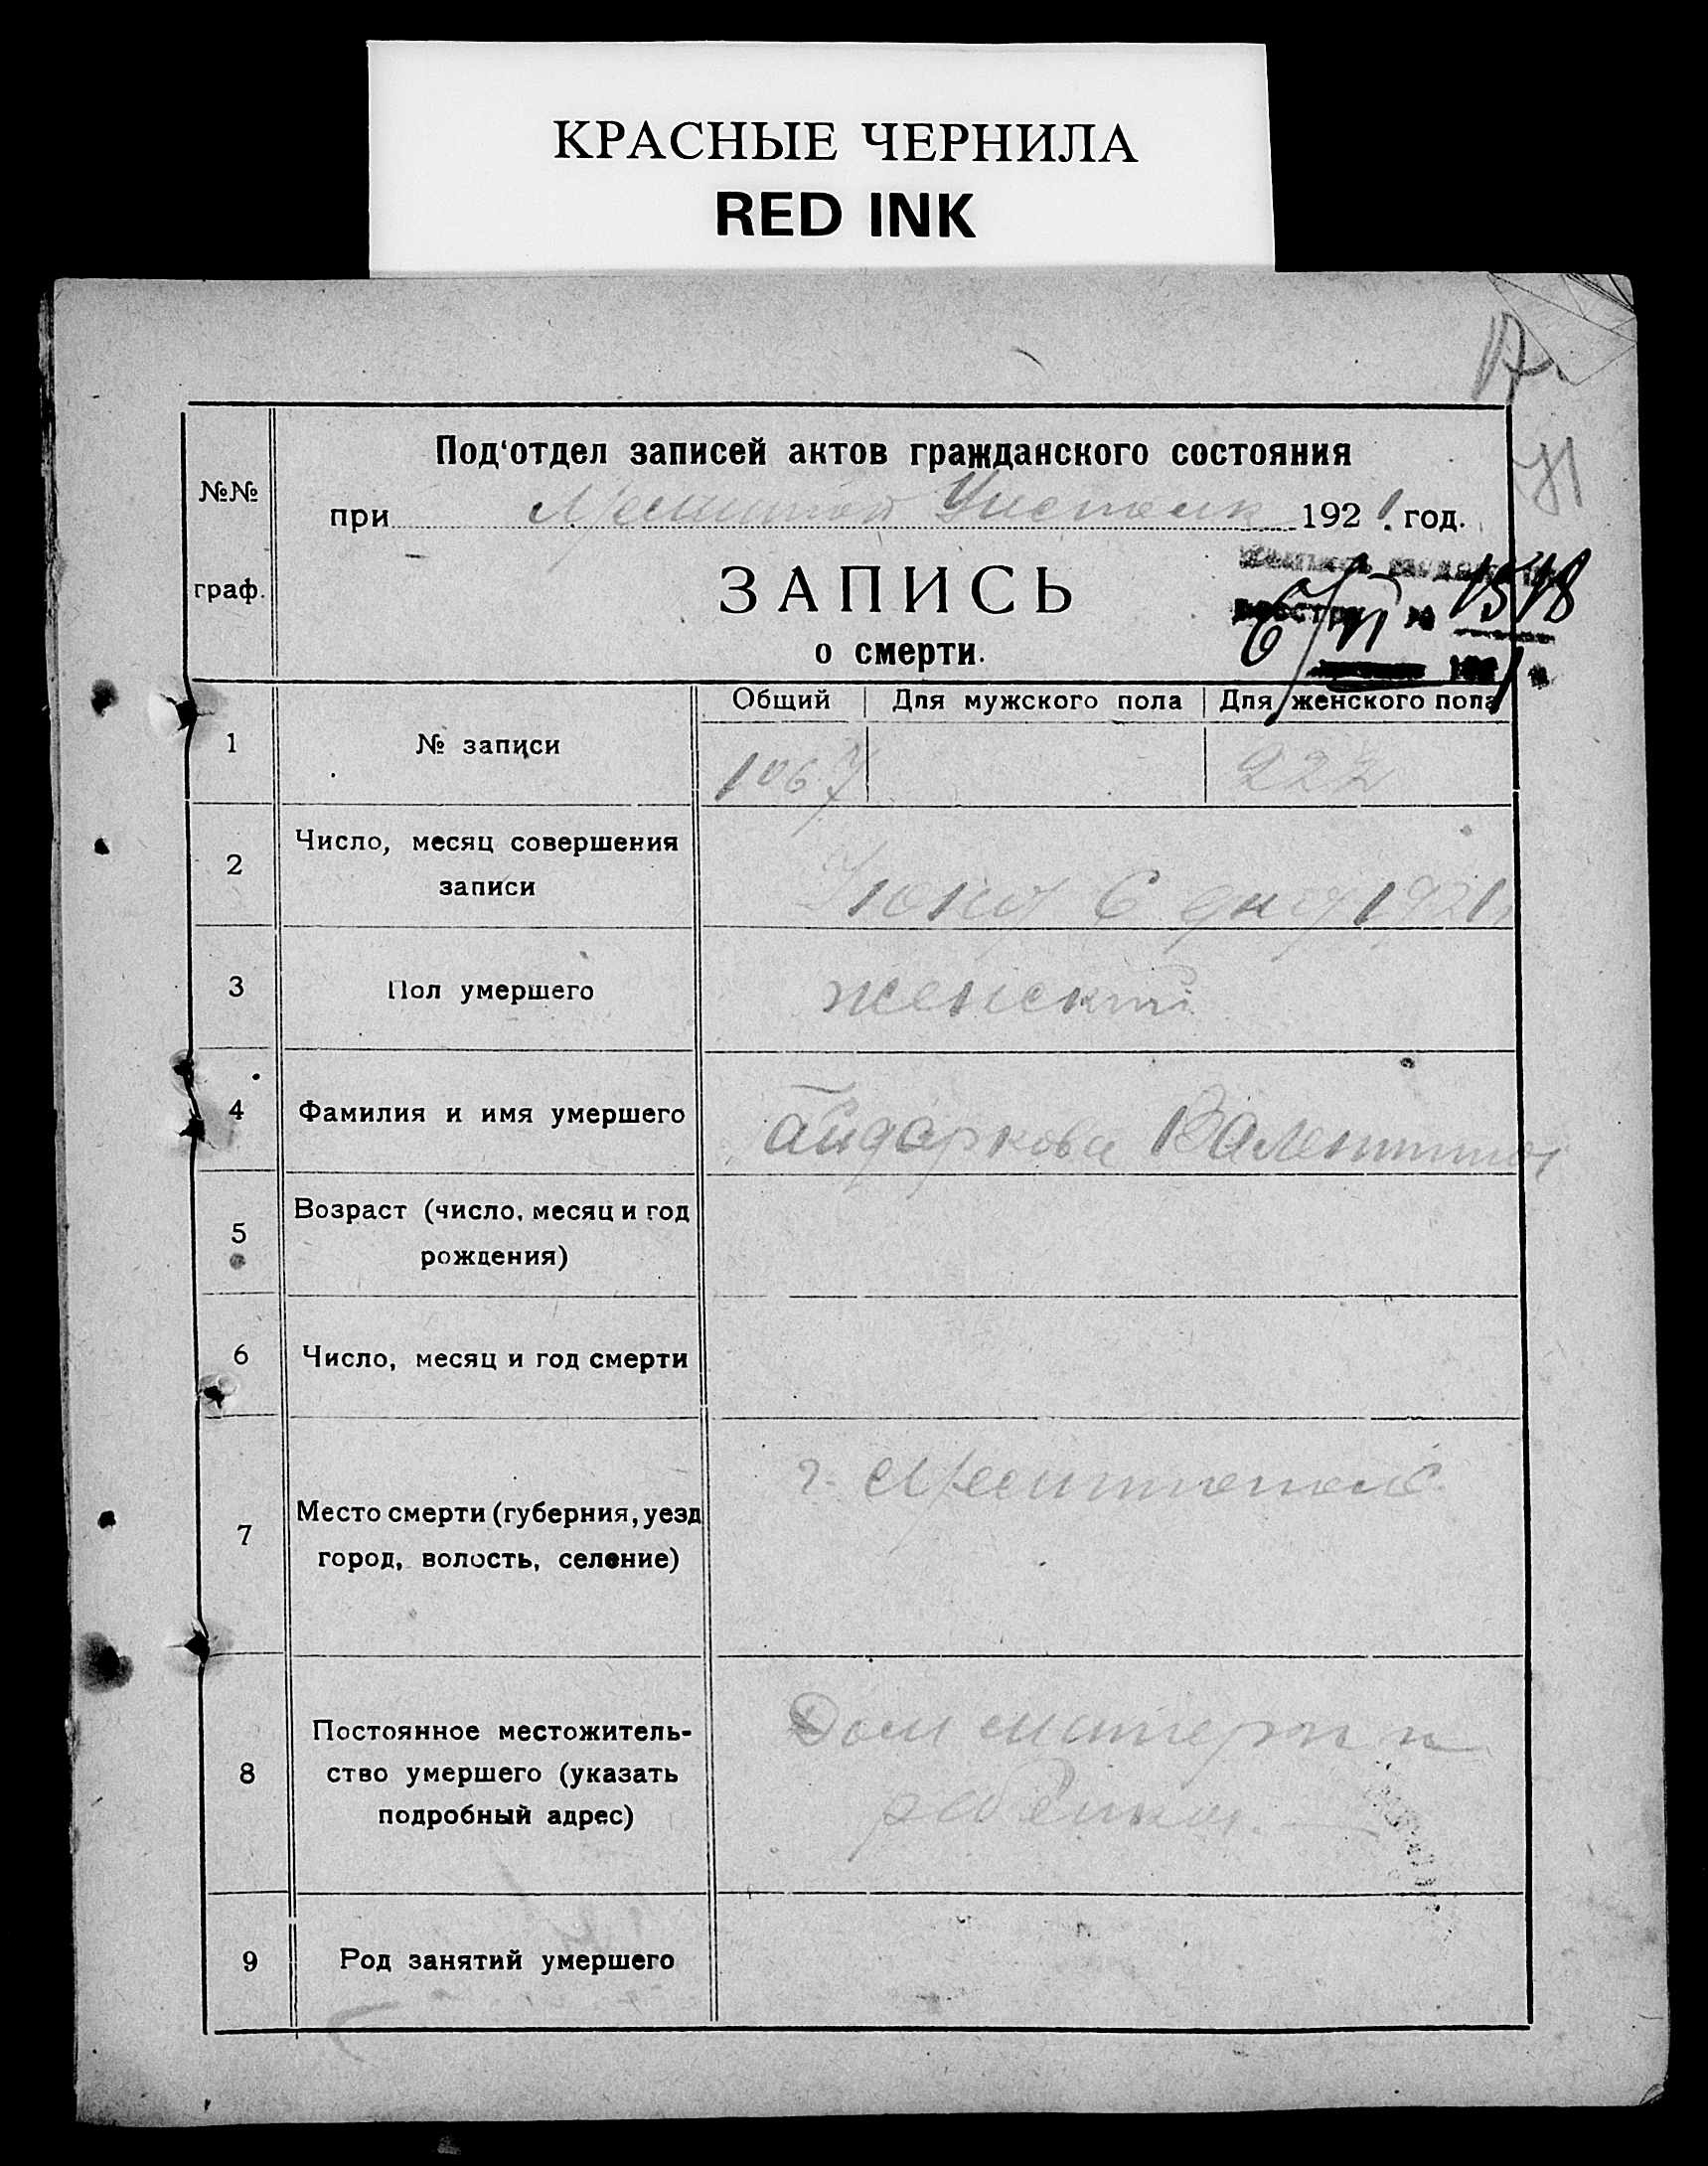 КРАСНЫЕ ЧЕРНИЛА
RED INK
17
Под‘отдел записей актов гражданского состояния
№№
при 1921 год.
граф.
ЗАПИСЬ
о смерти.
№ 1518
6/VI
Общий Для мужского пола Для женского пола
1 № записи 1067 222
2 Число, месяц совершения
записи
Июня 6 дня 1921
3 Пол умершего женский
4 Фамилия и имя умершего Айдаркова Валентина
5 Возраст (число, месяц и год
рождения)
6 Число, месяц и год смерти
г. Мелитополь
7 Место смерти (губерния, уезд
город, волость, селение)
8 Постоянное местожитель-
ство умершего (указать
подробный адрес)
Дом матери и
ребенка.
9 Род занятий умершего